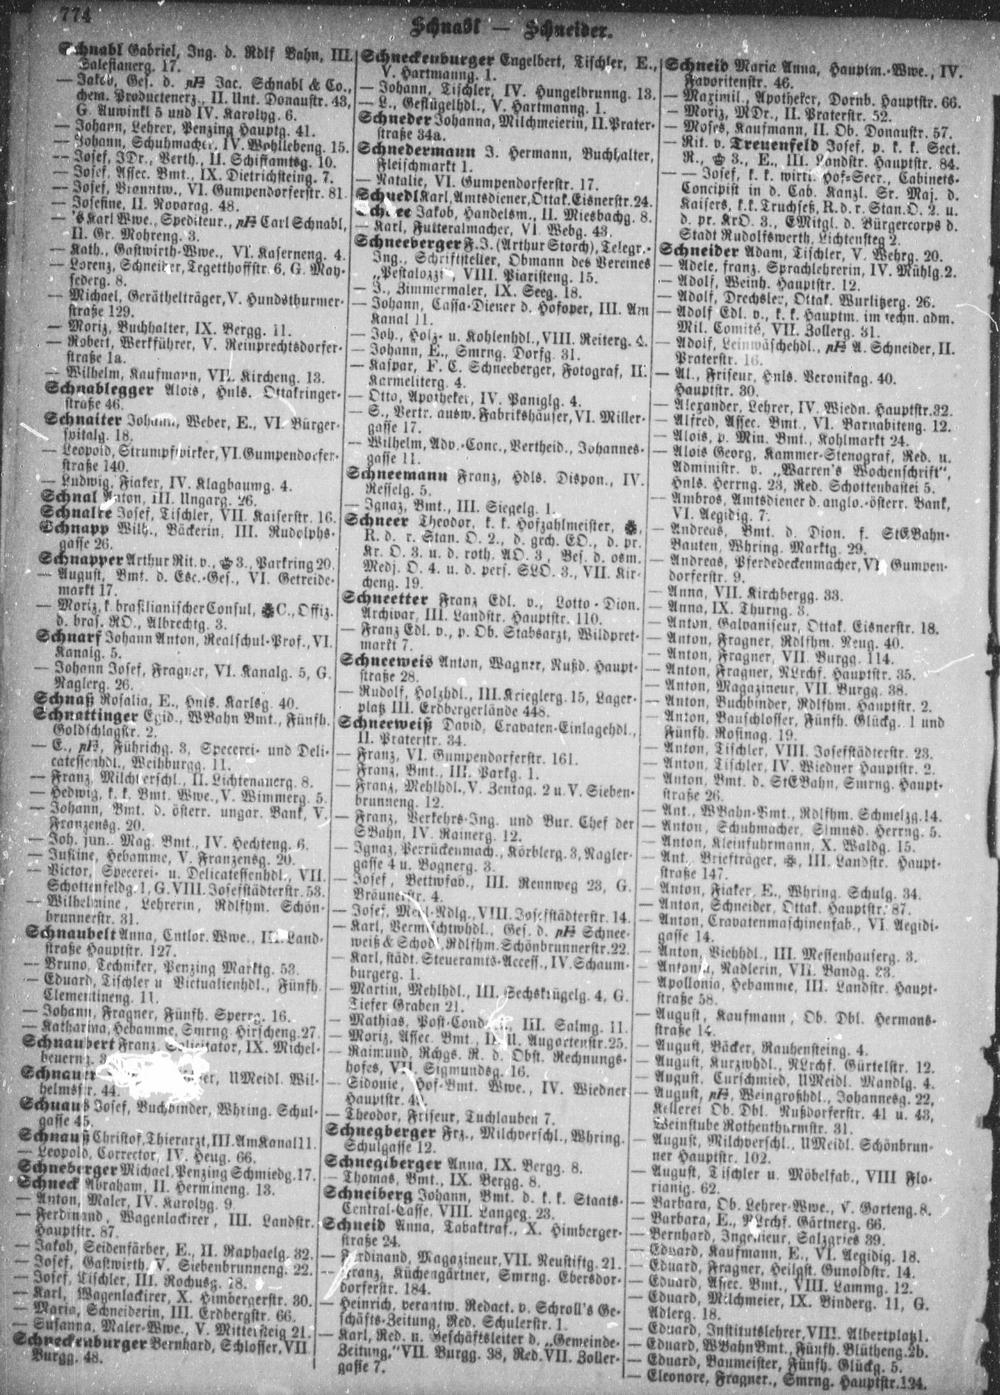 774
Schnabl — Schneider.
Schnabl Gabriel, Ing. d. Rdlf Bahn, III.
Salesianerg. 17.
— Jakob, Ges. d. Jac. Schnabl & Co.,
chem. Productenerz., II. Unt. Donaustr. 43,
G. Auwinkl 5 und IV. Karolyg. 6.
— Johann, Lehrer, Penzing Hauptg. 41.
— Johann, Schuhmacher, IV. Wohllebeng. 15.
— Josef, JDr., Verth., II. Schiffamtsg. 10.
— Josef, Assec. Bmt., IX. Dietrichsteing. 7.
— Josef, Branntw., VI. Gumpendorferstr. 81.
— Josefine, II. Novarag. 48.
— 's Karl Wwe., Spediteur., Carl Schnabl,
II. Gr. Mohreng. 3.
— Kath., Gastwirth-Wwe., VI. Kaserneng. 4.
— Lorenz, Schneider, Tegetthoffstr. 6, G. May-
sederg. 8.
— Michael, Geräthelträger, V. Hundsthurmer-
straße 129.
— Moriz, Buchhalter, IX. Bergg. 11.
— Robert, Werkführer, V. Reinprechtsdorfer-
straße 1a.
— Wilhelm, Kaufmann, VII. Kircheng. 13.
Schnablegger Alois, Hnls. Ottakringer-
straße 46.
Schnaiter Johann, Weber, E., VI. Bürger-
spitalg. 18.
— Leopold, Strumpfwirker, VI. Gumpendorfer-
straße 140.
— Ludwig, Fiaker, IV. Klagbaumg. 4.
Schnal Anton, III. Ungarg. 26.
Schnalre Josef, Tischler, VII. Kaiserstr. 16.
Schnapp Wilh., Bäckerin, III. Rudolphs-
gasse 26.
Schnapper Arthur Rit. v., 3., Parkring 20.
— August, Bmt. d. Esc.-Ges., VI. Getreide-
markt 17.
— Moriz, k. brasilianischer Consul, C., Offiz.
d. bras. RO., Albrechtg. 3.
Schnarf Johann Anton, Realschul-Prof., VI.
Kanalg. 5.
— Johann Josef, Fragner, VI. Kanalg. 5, G.
Naglerg. 26.
Schnaß Rosalia, E., Hnls. Karlsg. 40.
Schnattinger Egid., WBahn Bmt., Fünfh.
Goldschlagstr. 2.
— E., Führichg. 3, Specerei- und Deli-
catessenhdl., Weihburgg. 11.
— Franz, Milchverschl., II. Lichtenauerg. 8.
— Hedwig, k. k. Bmt. Wwe., V. Wimmerg. 5.
— Johann, Bmt. d. österr. ungar. Bank, V.
Franzensg. 20.
— Joh. jun., Mag. Bmt., IV. Hechteng. 6.
— Justine, Hebamme, V. Franzensg. 20.
— Victor, Specerei- u. Delicatessenhdl., VII.
Schottenfeldg. 1, G. VIII. Josefstädterstr. 53.
— Wilhelmine, Lehrerin, Rdlfshm. Schön-
brunnerstr. 31.
Schnaubelt Anna, Cntlor. Wwe., III. Land-
straße Hauptstr. 127.
— Bruno, Techniker, Penzing Marktg. 53.
— Eduard, Tischler u. Victualienhdl., Fünfh.
Clementineng. 11.
— Johann, Fragner, Fünfh. Sperrg. 16.
— Katharina, Hebamme, Smrng. Hirscheng. 27.
Schnaubert Franz, Solicitator, IX. Michel-
beuernz.
UMeidl. Wil-
helmsstr. 44.
Schnaus Josef, Buchbinder, Whring. Schul-
gasse 45.
Schnauß Christof, Thierarzt, III. Am Kanal 11.
— Leopold, Corrector, IV. Heug. 66.
Schneberger Michael, Penzing Schmiedg. 17.
Schneck Abraham, II. Hermineng. 13.
— Anton, Maler, IV. Karolyg. 9.
— Ferdinand, Wagenlackirer, III. Landstr.
Hauptstr. 87.
— Jakob, Seidenfärber, E., II. Raphaelg. 32.
— Josef, Gastwirth, V. Siebenbrunneng. 22.
— Josef, Tischler, III. Rochusg. 18.
— Karl, Wagenlackirer, X. Himbergerstr. 30.
— Maria, Schneiderin, III. Erdbergstr. 66.
— Susanna, Maler-Wwe., V. Mittersteig 21.
Schneckenburger Bernhard, Schlosser, VII.
Burgg. 48.
Schneckenburger Engelbert, Tischler, E.,
V. Hartmanng. 1.
— Johann, Tischler, IV. Hungelbrunng. 13.
— L., Geflügelhdl., V. Hartmanng. 1.
Schneder Johanna, Milchmeierin, II. Prater-
straße 34a.
Schnedermann J. Hermann, Buchhalter,
Fleischmarkt 1.
— Natalie, VI. Gumpendorferstr. 17.
Schnedl Karl, Amtsdiener, Ottak. Eisnerstr. 24.
Schnee Jakob, Handelsm., II. Miesbachg. 8.
— Karl, Futteralmacher, VI. Webg. 43.
Schneeberger F. J. (Arthur Storch), Telegr.-
Ing., Schriftsteller, Obmann des Vereines
„Pestalozzi", VIII. Piaristeng. 15.
— J., Zimmermaler, IX. Seeg. 18.
— Johann, Cassa-Diener d. Hofoper, III. Am
Kanal 11.
— Joh., Holz- u. Kohlenhdl., VIII. Reiterg. 4.
— Johann, E., Smrng. Dorfg. 31.
— Kaspar, F. C. Schneeberger, Fotograf, II.
Karmeliterg. 4.
— Otto, Apotheker, IV. Paniglg. 4.
— S., Vertr. ausw. Fabrikshäuser, VI. Miller-
gasse 17.
— Wilhelm, Adv.-Conc., Vertheid., Johannes-
gasse 11.
Schneemann Franz, Hdls. Dispon., IV.
Resselg. 5.
— Ignaz, Bmt., III. Siegelg. 1.
Schneer Theodor, k. k. Hofzahlmeister,
R. d. r. Stan. O. 2., d. grch. EO., d. pr.
Kr. O. 3. u. d. roth. AO. 3., Bes. d. osm.
Medj. O. 4. u. d. pers. SLO. 3., VII. Kir-
cheng. 19.
Schneetter Franz Edl. v., Lotto-Dion.
Archivar, III. Landstr. Hauptstr. 110.
— Franz Edl. v., p. Ob. Stabsarzt, Wildpret-
markt 7.
Schneeweis Anton, Wagner, Nußd. Haupt-
straße 28.
— Rudolf, Holzhdl., III. Krieglerg. 15, Lager-
platz III. Erdbergerlände 448.
Schneeweiß David, Cravaten-Einlagehdl.,
II. Praterstr. 34.
— Franz, VI. Gumpendorferstr. 161.
— Franz, Bmt., III. Parkg. 1.
— Franz, Mehlhdl., V. Zentag. 2 u. V. Sieben-
brunneng. 12.
— Franz, Verkehrs-Ing. und Bur. Chef der
SBahn, IV. Rainerg. 12.
— Ignaz, Perrückenmach., Körblerg. 3, Nagler-
gasse 4 u. Bognerg. 3.
— Josef, Bettwfab., III. Rennweg 23, G.
Bräunerstr. 4.
— Josef, Mehl-Ndlg., VIII. Josefstädterstr. 14.
— Karl, Vermischtwhdl., Ges. d. Schnee-
weiß & Schod, Rdlfshm. Schönbrunnerstr. 22.
— Karl, städt. Steueramts-Access., IV. Schaum-
burgerg. 1.
— Martin, Mehlhdl., III. Sechskrügelg. 4, G.
Tiefer Graben 21.
— Mathias, Post-Cond., III. Salmg. 11.
— Moriz, Assec. Bmt., II. Augartenstr. 25.
— Raimund, Rchgs. R. d. Obst. Rechnungs-
hofes, VII. Sigmundsg. 16.
— Sidonie, Hof-Bmt. Wwe., IV. Wiedner
Hauptstr.
— Theodor, Friseur, Tuchlauben 7.
Schnegberger Frz., Milchverschl., Whring.
Schulgasse 12.
Schnegiberger Anna, IX. Bergg. 8.
— Thomas, Bmt., IX. Bergg. 8.
Schneiberg Johann, Bmt. d. k. k. Staats-
Central-Casse, VIII. Langeg. 23.
Schneid Anna, Tabaktraf., X. Himberger-
straße 24.
— Ferdinand, Magazineur, VII. Neustiftg. 21.
— Franz, Küchengärtner, Smrng. Ebersdor-
dorferstr. 184.
— Heinrich, verantw. Redact. v. Schroll's Ge-
schäfts-Zeitung, Red. Schulerstr. 1.
— Karl, Red. u. Geschäftsleiter d. „Gemeinde-
Zeitung," VII. Burgg. 38, Red. VII. Zoller-
gasse 7.
Schneid Maria Anna, Hauptm.-Wwe., IV.
Favoritenstr. 46.
— Maximil., Apotheker, Dornb. Hauptstr. 66.
— Moriz, MDr., II. Praterstr. 52.
— Moses, Kaufmann, II. Ob. Donaustr. 57.
— Rit. v. Treuenfeld Josef, p. k. k. Sect.
R., 3., E., III. Landstr. Hauptstr. 84.
— — Josef, k. k. wirkl. Hof-Secr., Cabinets-
Concipist in d. Cab. Kanzl. Sr. Maj. d.
Kaisers, k. k. Truchseß, R. d. r. Stan. O. 2. u.
d. pr. KrO. 3., EMitgl. d. Bürgercorps d.
Stadt Rudolfswerth, Lichtensteg 2.
Schneider Adam, Tischler, V. Wehrg. 20.
— Adele, franz. Sprachlehrerin, IV. Mühlg. 2.
— Adolf, Weinh. Hauptstr. 12.
— Adolf, Drechsler, Ottak. Wurlitzerg. 26.
— Adolf Edl. v., k. k. Hauptm. im techn. adm.
Mil. Comité, VII. Zollerg. 31.
— Adolf, Leinwäschehdl., A. Schneider, II.
Praterstr. 16.
— Al., Friseur, Hnls. Veronikag. 40.
Hauptstr. 30.
— Alexander, Lehrer, IV. Wiedn. Hauptstr. 32.
— Alfred, Assec. Bmt., VI. Barnabiteng. 12.
— Alois, p. Min. Bmt., Kohlmarkt 24.
— Alois Georg, Kammer-Stenograf, Red. u.
Administr. v. „Warren's Wochenschrift",
Hnls. Herrng. 23, Red. Schottenbastei 5.
— Ambros, Amtsdiener d. anglo.-österr. Bank,
VI. Aegidig. 7.
— Andreas, Bmt. d. Dion. f. StEBahn-
Bauten, Whring. Marktg. 29.
— Andreas, Pferdedeckenmacher, VI. Gumpen-
dorferstr. 9.
— Anna, VII. Kirchbergg. 33.
— Anna, IX. Thurng. 3.
— Anton, Galvaniseur, Ottak. Eisnerstr. 18.
— Anton, Fragner, Rdlfshm. Neug. 40.
— Anton, Fragner, VII. Burgg. 114.
— Anton, Fragner, NLrchf. Hauptstr. 35.
— Anton, Magazineur, VII. Burgg. 38.
— Anton, Buchbinder, Rdlfshm. Hauptstr. 2.
— Anton, Bauschlosser, Fünfh. Glückg. 1 und
Fünfh. Rosinag. 19.
— Anton, Tischler, VIII. Josefstädterstr. 23.
— Anton, Tischler, IV. Wiedner Hauptstr. 2.
— Anton, Bmt. d. StEBahn, Smrng. Haupt-
straße 26.
— Ant., WBahn-Bmt., Rdlfshm. Schmelzg. 14.
— Anton, Schuhmacher, Simnsd. Herrng. 5.
— Anton, Kleinfuhrmann, X. Waldg. 15.
— Ant., Briefträger, III. Landstr. Haupt-
straße 147.
— Anton, Fiaker, E., Whring. Schulg. 34.
— Anton, Schneider, Ottak. Hauptstr. 87.
— Anton, Cravatenmaschinenfab., VI. Aegidi-
gasse 14.
— Anton, Viehhdl., III. Messenhauserg. 3.
— Antonia, Nadlerin, VII. Bandg. 23.
— Apollonia, Hebamme, III. Landstr. Haupt-
straße 58.
— August, Kaufmann, Ob. Dbl. Hermans-
straße 14.
— August, Bäcker, Rauhensteing. 4.
— August, Kurzwhdl., NLrchf. Gürtelstr. 12.
— August, Curschmied, UMeidl. Mandlg. 4.
— August, Weingroßhdl., Johannesg. 22,
Kellerei Ob. Dbl. Nußdorferstr. 41 u. 43,
Weinstube Rothenthurmstr. 31.
— August, Milchverschl., UMeidl. Schönbrun-
ner Hauptstr. 102.
— August, Tischler u. Möbelfab., VIII Flo-
rianig. 62.
— Barbara, Ob. Lehrer-Wwe., V. Garteng. 8.
— Barbara, E., NLrchf. Gärtnerg. 66.
— Bernhard, Ingenieur, Salzgries 39.
— Eduard, Kaufmann, E., VI. Aegidig. 18.
— Eduard, Fragner, Heilgst. Gunoldstr. 14.
— Eduard, Assec. Bmt., VIII. Lammg. 12.
— Eduard, Milchmeier, IX. Binderg. 11, G.
Adlerg. 18.
— Eduard, Institutslehrer, VIII. Albertplatz 1.
— Eduard, WBahn Bmt., Fünfh. Blütheng. 2b.
— Eduard, Baumeister, Fünfh. Glückg. 5.
— Eleonore, Fragner., Smrng. Hauptstr. 124.